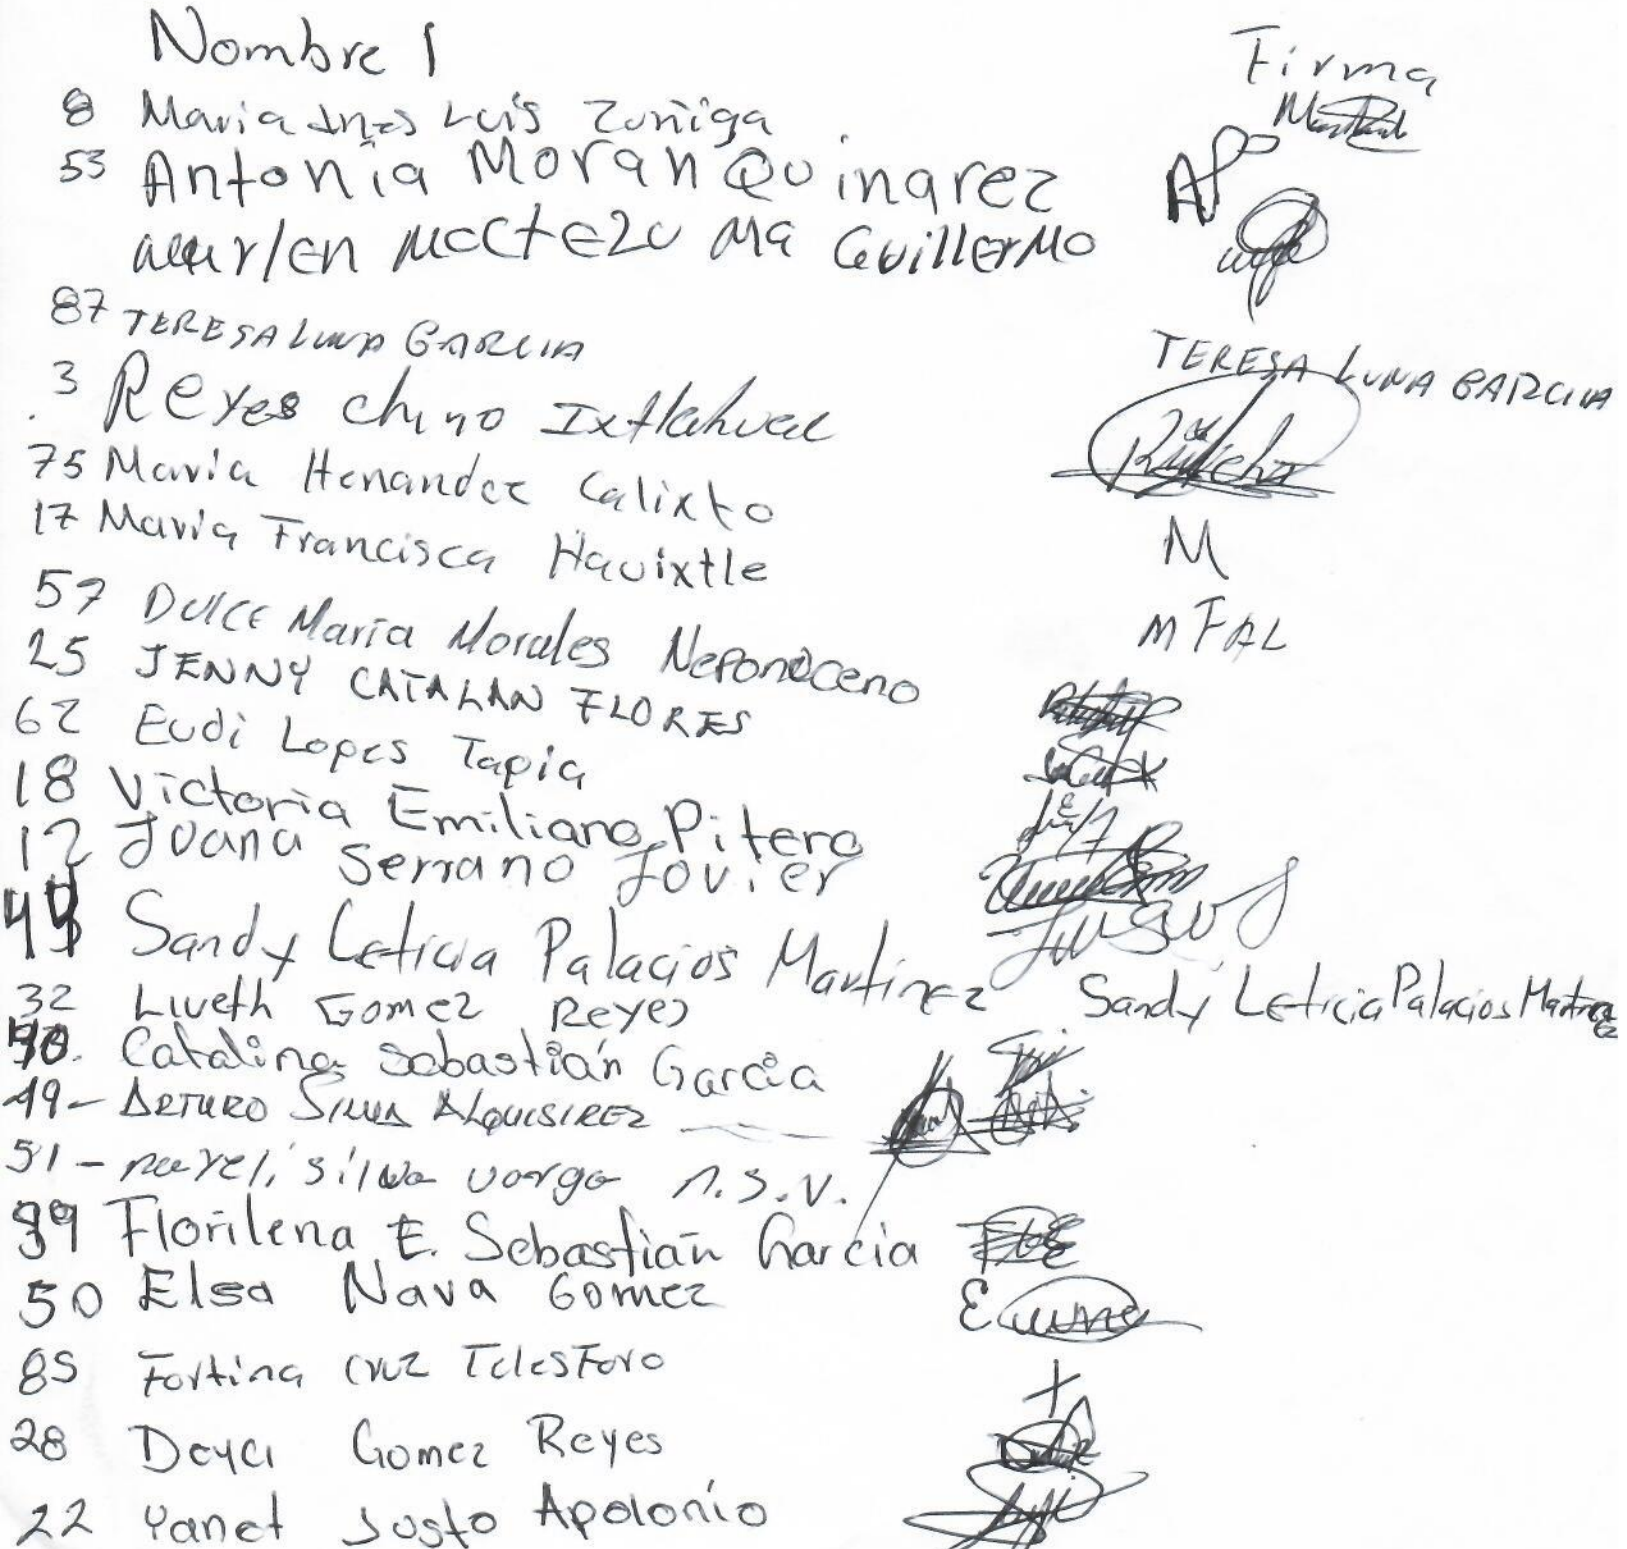 Nombre 1 Firma
8 Maria Ines Luis Zuñiga
53 Antonia Moran Quinarez
MoctEzuMa GuillErMo
87 TERESA LUNA GARCIA TERESA LUNA GARCIA
3 Reyes chino Ixtlahuac
75 Maria Henandez Calixto M
17 Maria Francisca Hauixtle MFAL
57 DULCE Maria Morales Neponoceno
25 JENNY CATALAN FLORES
62 Eudi Lopes Tapia
18 Victoria Emiliano Pitero
12 Juana Serrano Jovier
Sandy Leticia Palacios Martinez Sandy Leticia Palacios Martinez
32 Liveth Gomez Reyes
Catalina Sebastián Garcia
49- ARTURO SILVA ALQUISIREZ
51- nayeli silva varga n.s.v.
39 Florilena E. Sebastian Garcia
50 Elsa Nava Gomez
85 Fortina Cruz Telesforo +
28 Deya Gomez Reyes
22 Yanet Justo Apolonio